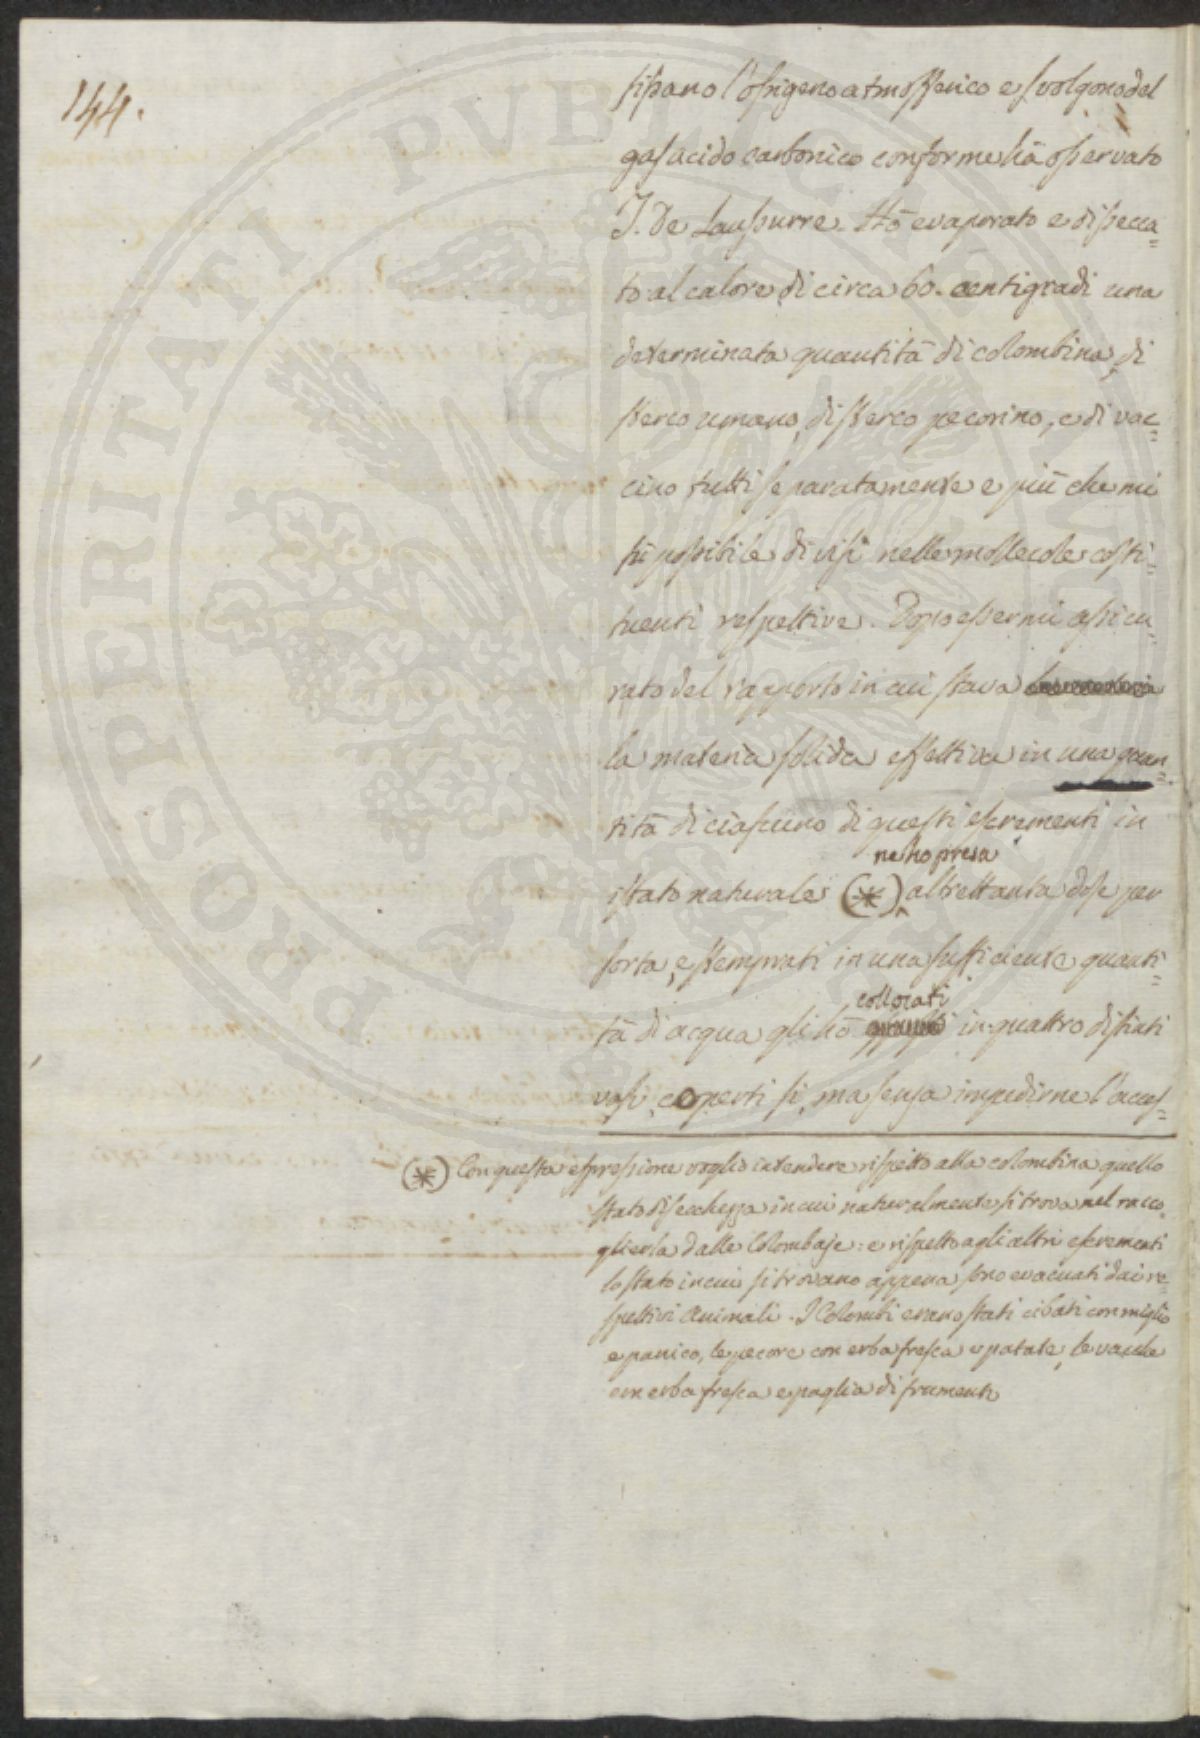 144.
fissano l'ossigeno atmosferico e svolgono del
gas acido carbonico conforme hà osservato
T. De Saussurre. Hò evaporato e dissecca=
to al calore di circa 60. centigradi una
determinata quantità di colombina, di
sterco umano, di sterco pecorino, e di vac=
cino tutti separatamente e più che mi
fù possibile divisi nelle mollecole costi=
tuenti respettive. Dopo essermi assicu=
rato del rapporto in cui stava
la materia solida effettiva in una quan=
tità di ciascuno di questi escrementi in
ne ho presa
istato naturale (*) altrettanta dose per
sorta, e stemprati in una sufficiente quanti=
collocati
tà di acqua gli hò in quattro distinti
vasi, coperti si, ma senza impedirne l'acces=
(*) Con questa espressione voglio intendere rispetto alla colombina quello
stato di secchezza in cui naturalmente si trova nel racco=
glierla dalle Colombaje: e rispetto agli altri escrementi
lo stato in cui si trovano appena sono evacuati dai re=
spettivi Animali. I Colombi erano stati cibati con miglio
e panico, le pecore con erba fresca e patate, le vacche
con erba fresca e paglia di frumento
PROSPERITATI PUBLICAE